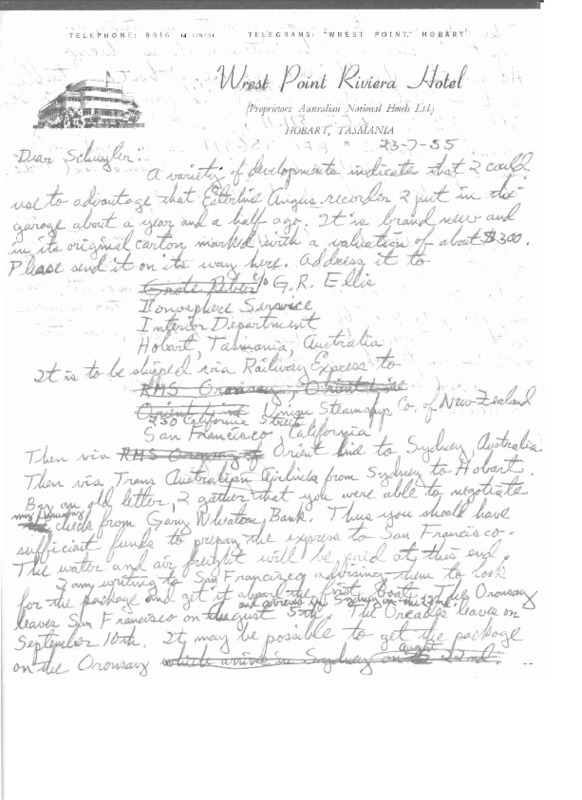 TELEPHONE: 9516 (4 LINES) TELEGRAMS: "WREST POINT," HOBART
Wrest Point Riviera Hotel
(Proprietors: Australian National Hotels Ltd.)
HOBART, TASMANIA
23-7-55
Dear Schuyler:-
A variety of developments indicate that I could
use to advantage that Esterline Angus recorder I put in the
garage about a year and a half ago. It is brand new and
in its original carton marked with a valuation of about $300.
Please send it on its way here. Address it to
Grote Reber % G.R. Ellis
Ionosphere Service
Interior Department
Hobart, Tasmania, Australia
It is to be shipped via Railway Express to
RHS Oronsay, Orient Line
Orient Line Union Steamship Co. of New Zealand
230 California Street
San Francisco, California
Then via RHS Oronsay of Orient Line to Sydney, Australia
Then via Trans Australian Airlines from Sydney to Hobart.
By an old letter, I gather that you were able to negotiate
check from Gary Wheaton Bank. Thus you should have
sufficient funds to prepay the express to San Francisco.
The water and air freight will be paid at this end.
I am writing to San Francisco advising them to look
for the package and get it aboard the first boat. The Oronsay
and arrives in Sydney on the 22nd.
leaves San Francisco on August 5th. The Orcades leaves on
September 10th. It may be possible to get the package
on the Oronsay which arrives in Sydney on August 22nd.